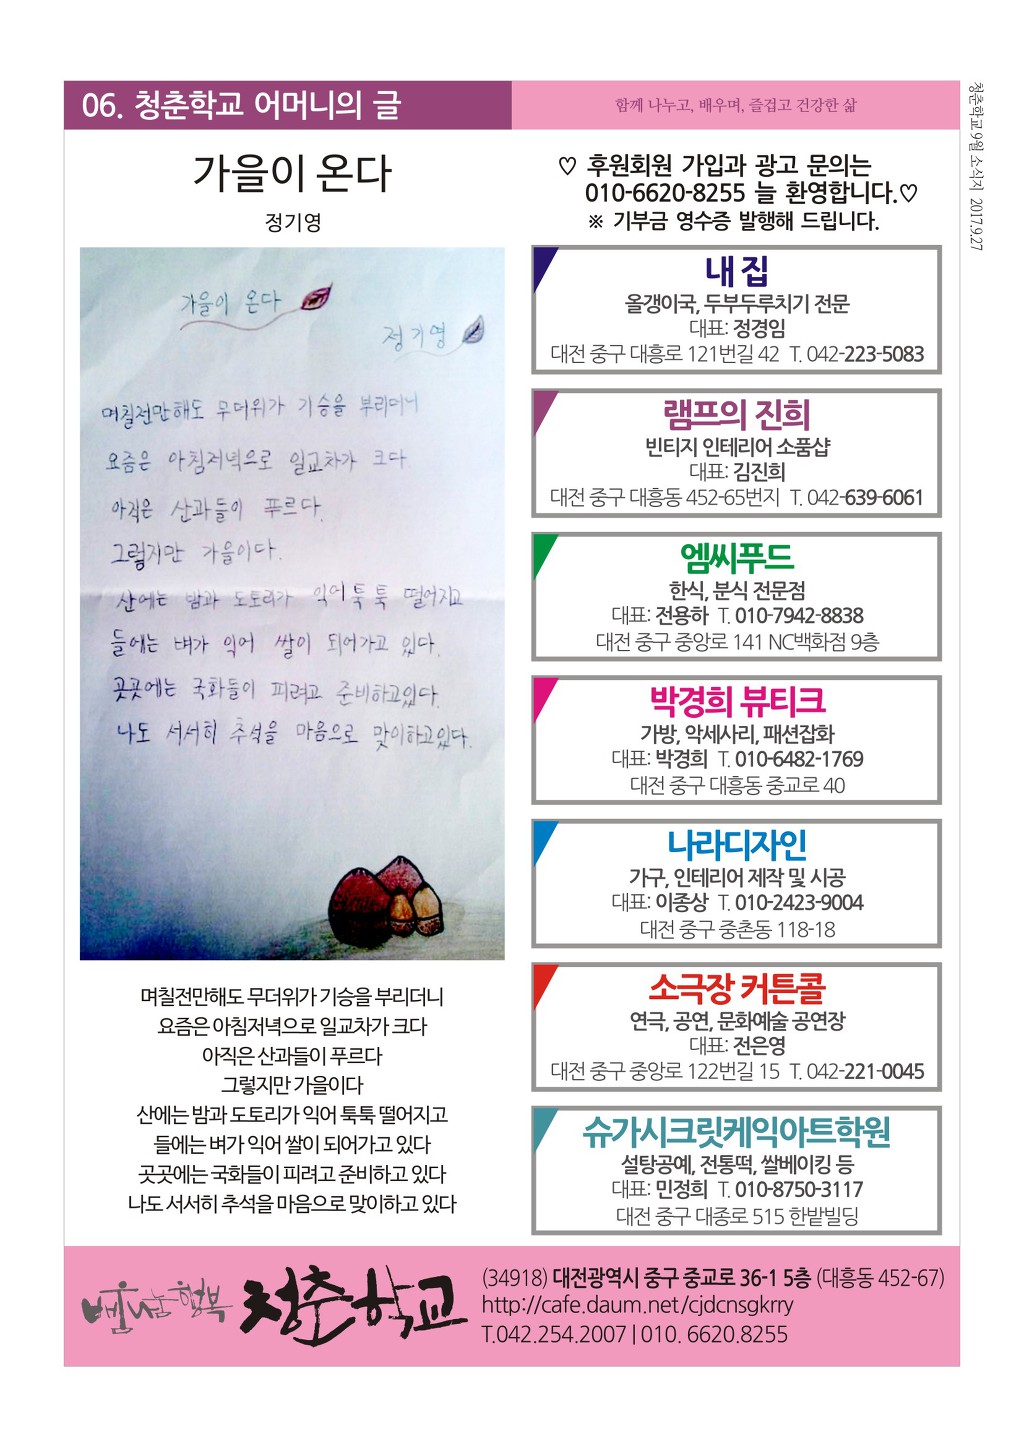 06. 청춘학교 어머니의 글
함께 나누고, 배우며, 즐겁고 건강한 삶
청춘학교 9월 소식지 2017.9.27
가을이 온다
정기영
가을이 온다
정기영
며칠전만해도 무더위가 기승을 부리더니
요즘은 아침저녁으로 일교차가 크다
아직은 산과들이 푸르다.
그렇지만 가을이다.
산에는 밤과 도토리가 익어 툭 툭 떨어지고
들에는 벼가 익어 쌀이 되어가고 있다.
곳곳에는 국화들이 피려고 준비하고있다.
나도 서서히 추석을 마음으로 맞이하고있다.
며칠전만해도 무더위가 기승을 부리더니
요즘은 아침저녁으로 일교차가 크다
아직은 산과들이 푸르다
그렇지만 가을이다
산에는 밤과 도토리가 익어 툭툭 떨어지고
들에는 벼가 익어 쌀이 되어가고 있다
곳곳에는 국화들이 피려고 준비하고 있다
나도 서서히 추석을 마음으로 맞이하고 있다
♡ 후원회원 가입과 광고 문의는
010-6620-8255 늘 환영합니다.♡
※ 기부금 영수증 발행해 드립니다.
내 집
올갱이국, 두부두루치기 전문
대표: 정경임
대전 중구 대흥로 121번길 42 T. 042-223-5083
램프의 진희
빈티지 인테리어 소품샵
대표: 김진희
대전 중구 대흥동 452-65번지 T. 042-639-6061
엠씨푸드
한식, 분식 전문점
대표: 전용하 T. 010-7942-8838
대전 중구 중앙로 141 NC백화점 9층
박경희 뷰티크
가방, 악세사리, 패션잡화
대표: 박경희 T. 010-6482-1769
대전 중구 대흥동 중교로 40
나라디자인
가구, 인테리어 제작 및 시공
대표: 이종상 T. 010-2423-9004
대전 중구 중촌동 118-18
소극장 커튼콜
연극, 공연, 문화예술 공연장
대표: 전은영
대전 중구 중앙로 122번길 15 T. 042-221-0045
슈가시크릿케익아트학원
설탕공예, 전통떡, 쌀베이킹 등
대표: 민정희 T. 010-8750-3117
대전 중구 대종로 515 한밭빌딩
배움나눔행복 청춘학교
(34918) 대전광역시 중구 중교로 36-1 5층 (대흥동 452-67)
http://cafe.daum.net/cjdcnsgkrry
T.042.254.2007 | 010. 6620.8255